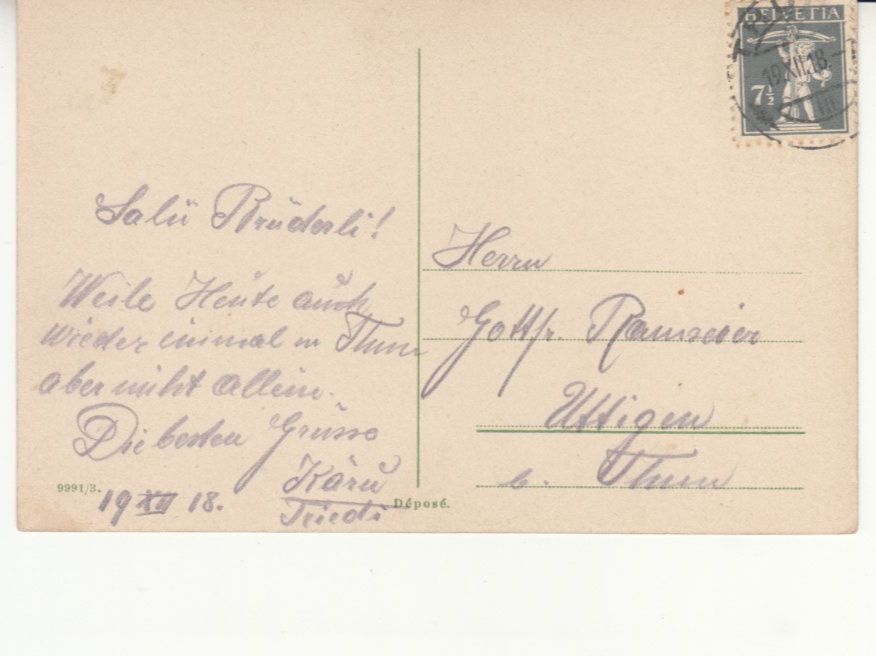 HELVETIA
19.XII.18.
7½
Salü Brüderli!
Weile Heute auch
wieder einmal in Thun
aber nicht allein.
Die besten Grüsse
Käru
Friedi
19 XII 18.
9991/3.
Déposé.
Herrn
Gottfr. Ramseier
Uttigen
b. Thun